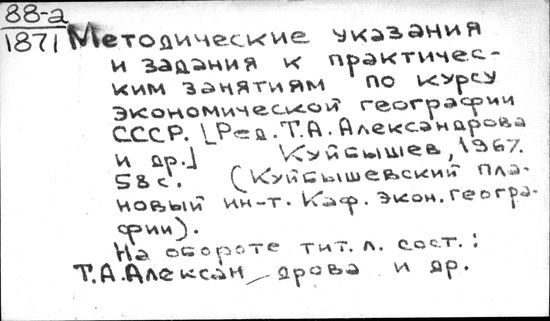 88-а
1871
Методические указания
и задания к практичес-
ким занятиям по курсу
экономической географии
СССР. [Ред. Т.А. Александрова
и др.] Куйбышев, 1967.
58 с. (Куйбышевский пла-
новый ин-т. Каф. экон. геогра-
фии).
На обороте тит. л. сост.:
Т.А. Александрова и др.